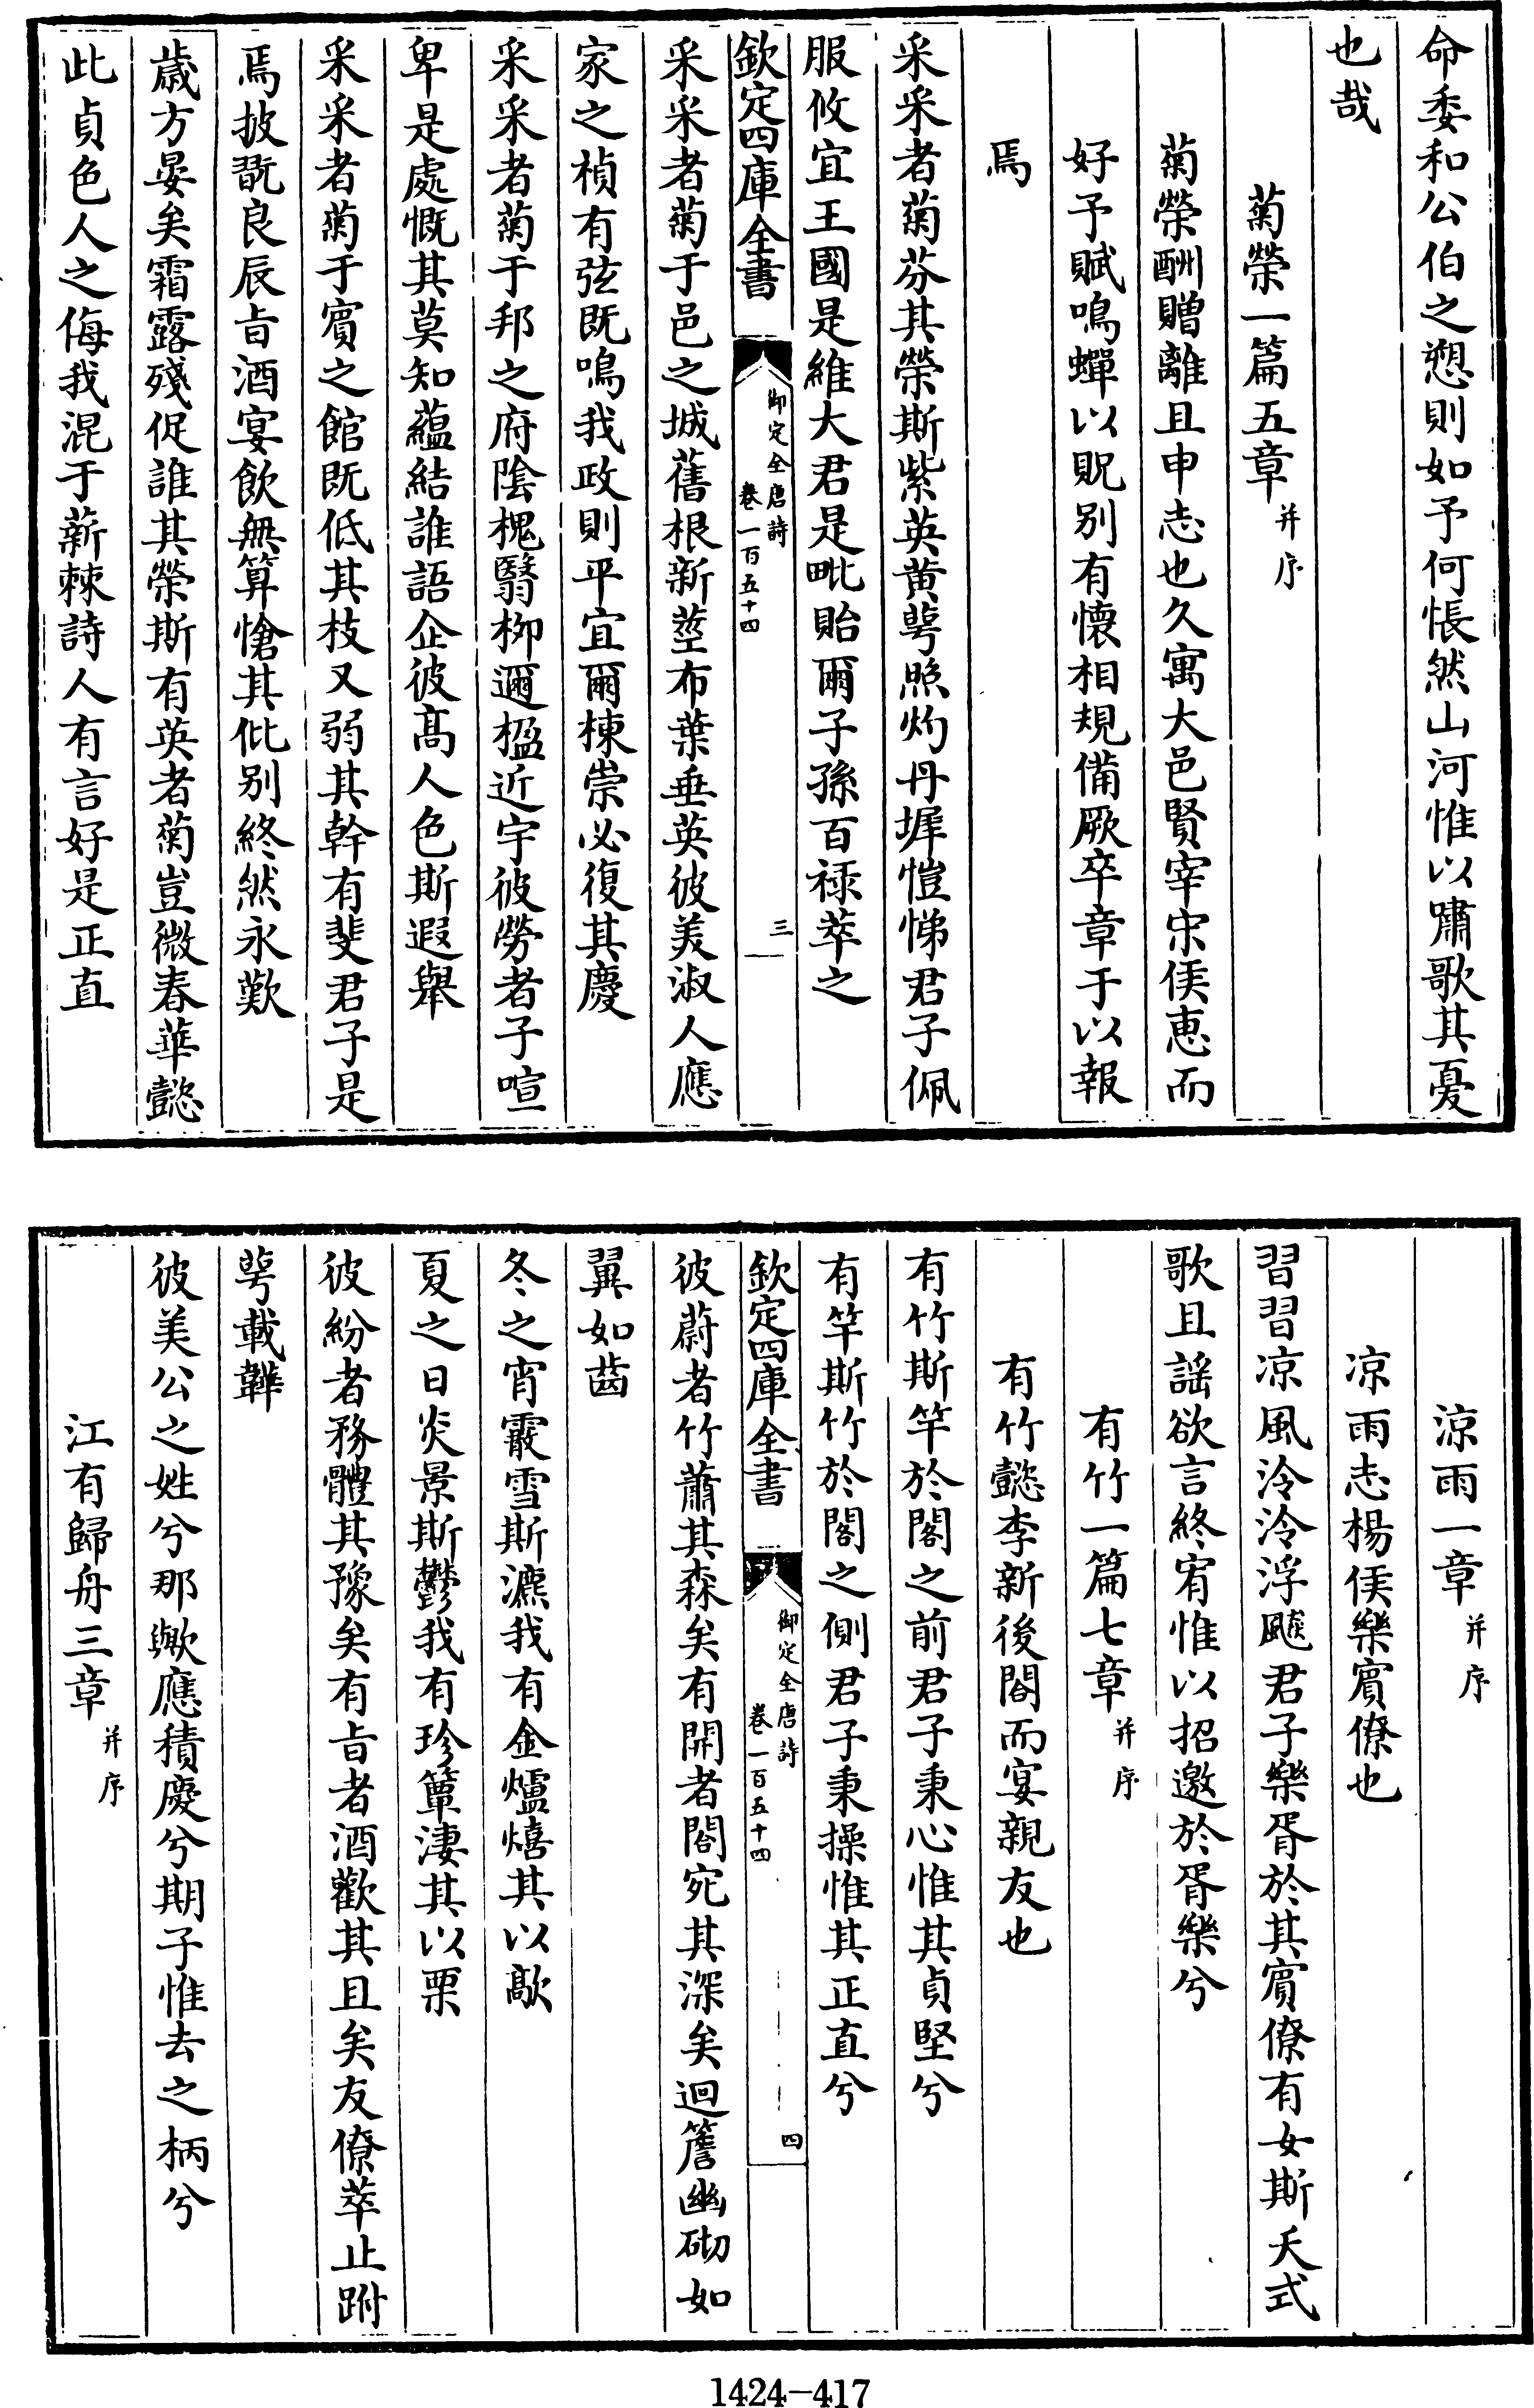 命委和公伯之愬則如予何悵然山河惟以嘯歌其憂
也哉
菊榮一篇五章并序
菊榮酬贈離且申志也久寓大邑賢宰宋侯惠而
好予賦鳴蟬以貺别有懷相規備厥卒章于以報
焉
采采者菊芬其榮斯紫英黄萼照灼丹墀愷悌君子佩
服攸宜王國是維大君是毗貽爾子孫百禄萃之
欽定四庫全書
御定全唐詩
卷一百五十四
三
采采者菊于邑之城舊根新莖布葉垂英彼美淑人應
家之禎有弦既鳴我政則平宜爾棟崇必復其慶
采采者菊于邦之府陰槐翳柳邇楹近宇彼勞者子喧
卑是處慨其莫知藴結誰語企彼髙人色斯遐舉
采采者菊于賔之館既低其枝又弱其幹有斐君子是
焉披翫良辰㫖酒宴飲無算愴其仳别終然永歎
歳方晏矣霜露殘促誰其榮斯有英者菊豈微春華懿
此貞色人之侮我混于薪棘詩人有言好是正直
涼雨一章并序
凉雨志楊侯樂賔僚也
習習凉風泠泠浮飈君子樂胥於其賔僚有女斯夭式
歌且謡欲言終宥惟以招邀於胥樂兮
有竹一篇七章并序
有竹懿李新後閤而宴親友也
有竹斯竿於閣之前君子秉心惟其貞堅兮
有竿斯竹於閣之側君子秉操惟其正直兮
欽定四庫全書
御定全唐詩
卷一百五十四
四
彼蔚者竹蕭其森矣有開者閤宛其深矣迴簷幽砌如
翼如齒
冬之宵霰雪斯瀌我有金爐熺其以歊
夏之日炎景斯鬱我有珍簟淒其以栗
彼紛者務體其豫矣有㫖者酒歡其且矣友僚萃止跗
萼載韡
彼美公之姓兮那歟應積慶兮期子惟去之柄兮
江有歸舟三章并序
1424-417